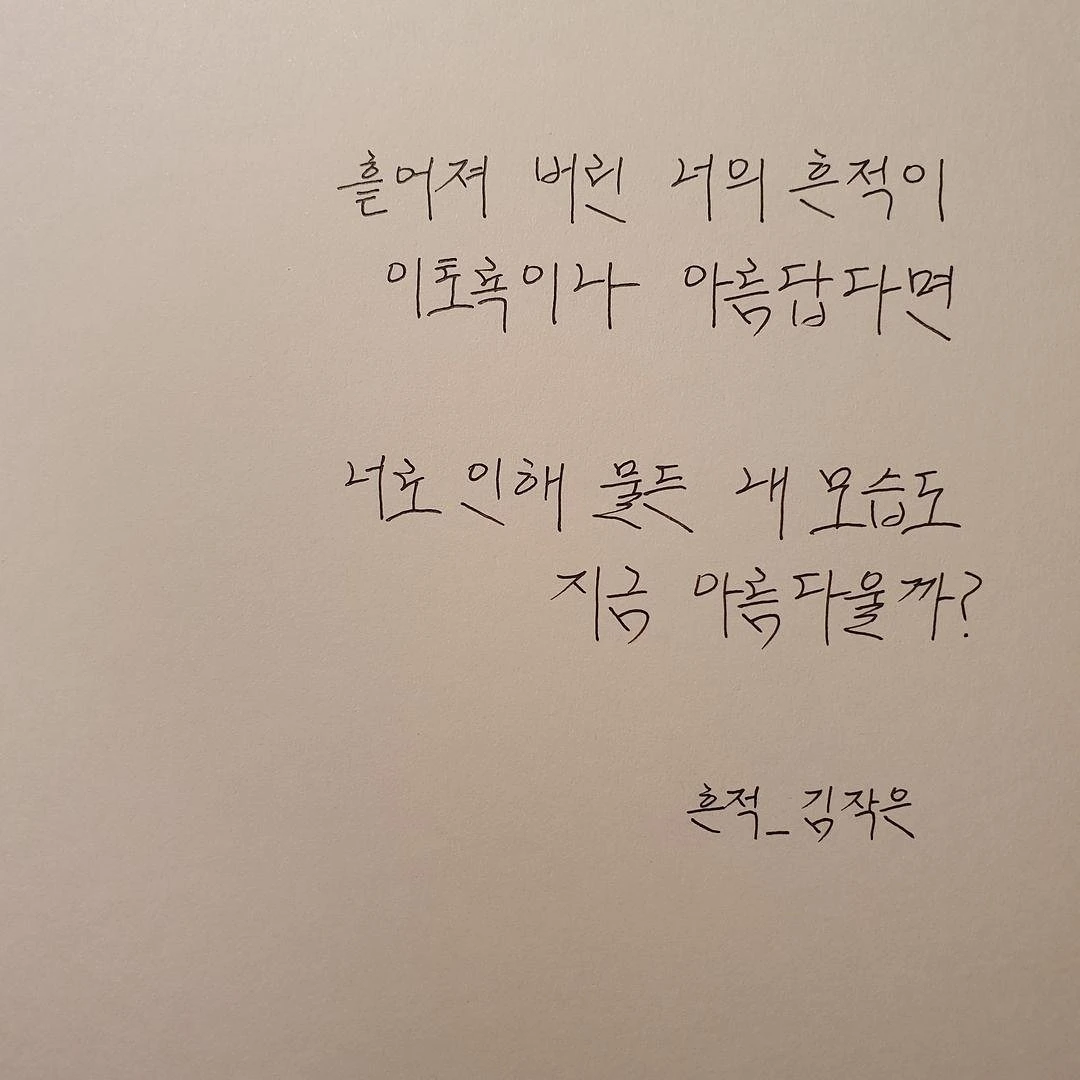 흩어져 버린 너의 흔적이
이토록이나 아름답다면
너로 인해 물든 내 모습도
지금 아름다울까?
흔적_김작은